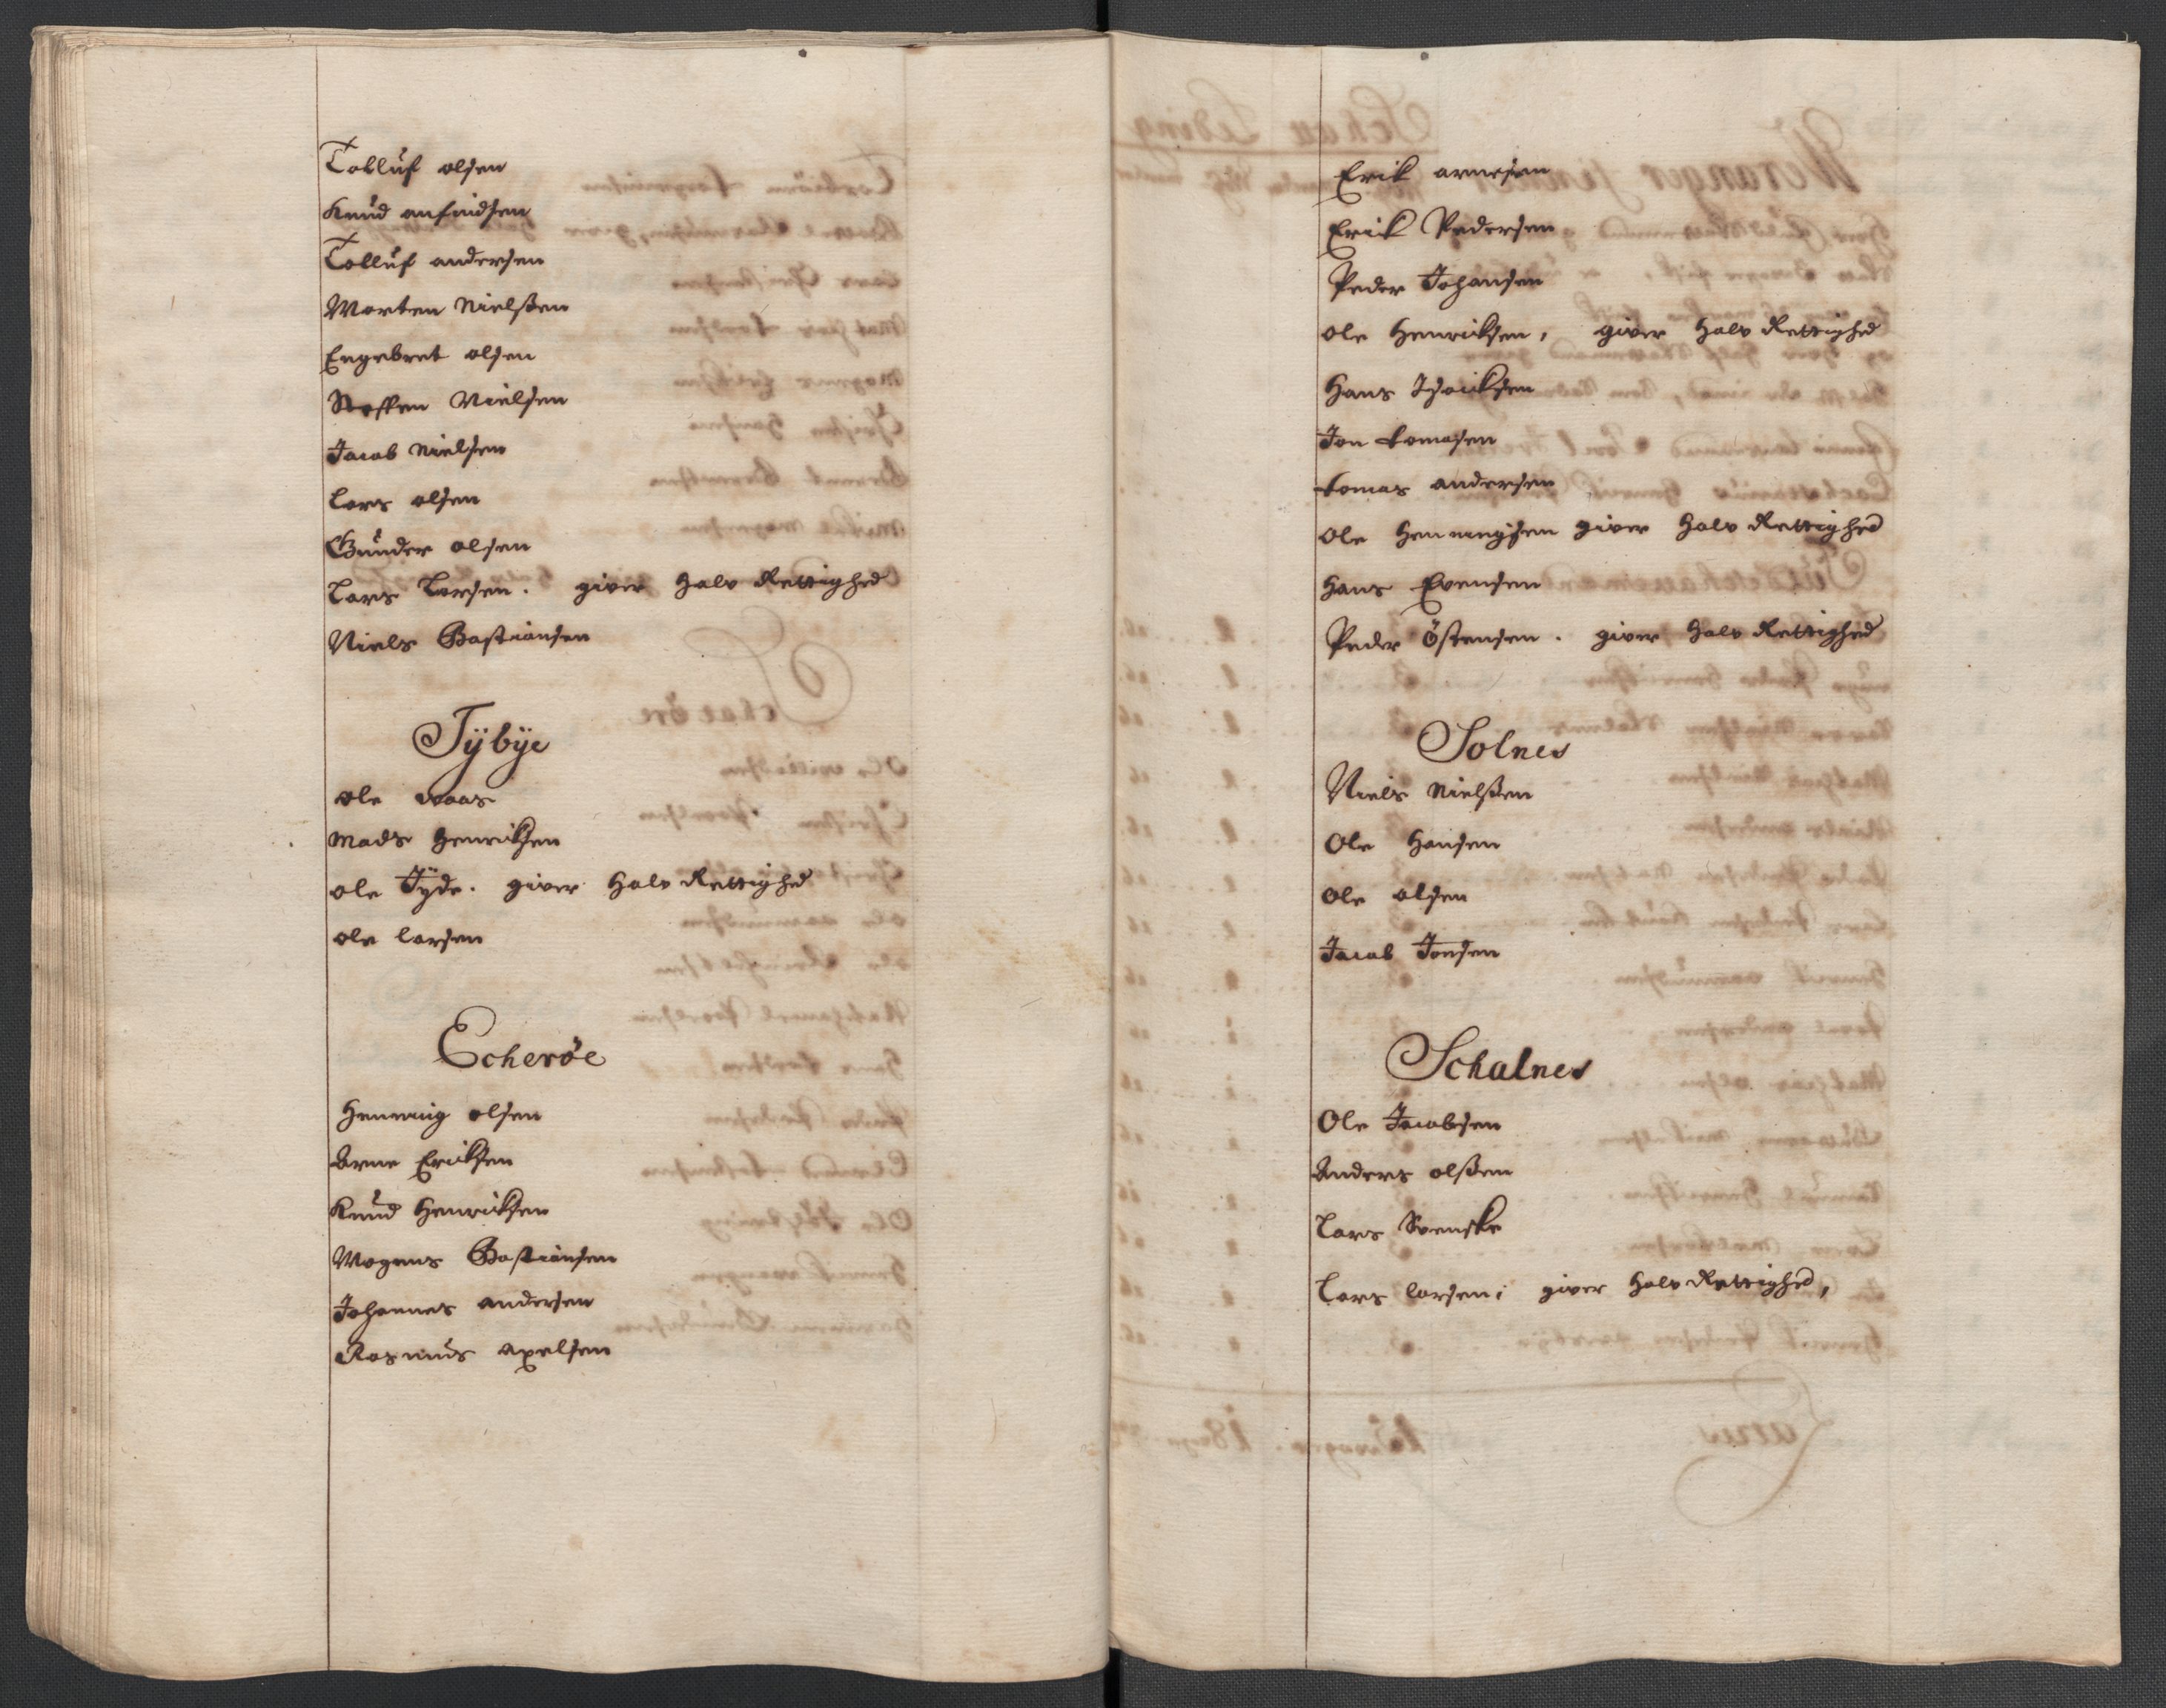 Tolluf olsen
Knud anfindsen
Tolluf andersen
Morten Nielssen
Engebret olsen
Steffen Nielsen
Jacob Nielsen
Lars olsen
Gunder olsen
Lars Larsen. giver halv Rettighed
Niels Bastiansen
Tÿbÿe
ole waar
Mads Henriksen
ole Tÿde. giver halv Rettighed
ole larsen
Echerøe
Henning olsen
Arne Eriksen
Knud Henriksen
Mogens Bastiansen
Johannes andersen
Rasmus axelsen
Erik arnesen
Erick Pedersen
Peder Johansen
ole Henricksen, giver halv Rettighed
Hans Isacksen
Jon tomasen
tomas andersen
ole Henningsen giver halv Rettighed
Hans Evensen
Peder Östensen. giver halv Rettighed
Solnes
Niels Nielssen
Ole Hansen
Ole olsen
Jacob Jonsen
Schalnes
Ole Jacobsen
Anders olssen
Lars Svenske
Lars larsen; giver halv Rettighed,